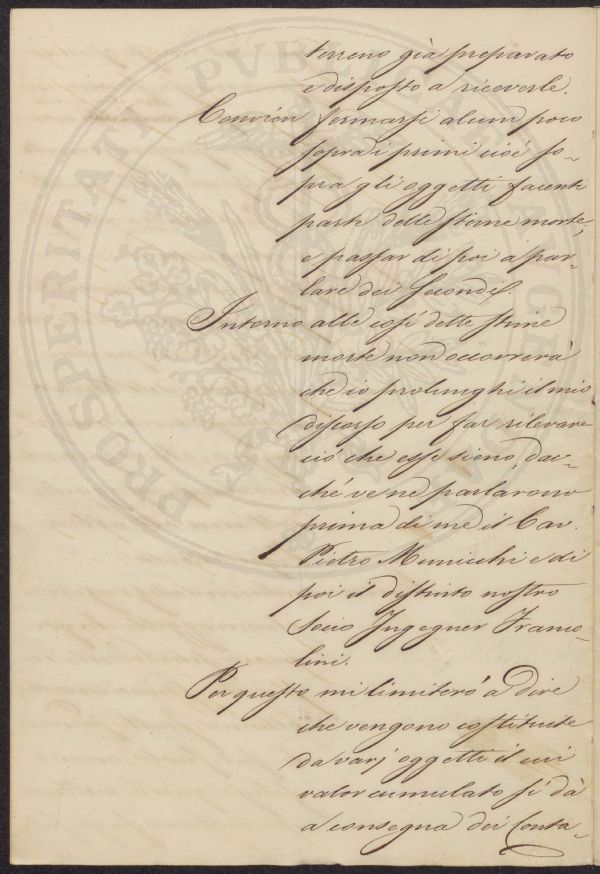 terreno già preparato
e disposto a riceverle.
Convien fermarsi alcun poco
sopra i primi cioè so-
pra gli oggetti facenti
parte delle stime morte,
e passar di poi a par-
lare dei secondi.
Intorno alle così dette stime
morte non occorrerà
che io prolunghi il mio
discorso per far rilevare
ciò che esse sieno, dac-
ché ve ne parlarono
prima di me il Cav.
Pietro Municchi e di
poi il distinto nostro
Socio Ingegner Franco-
lini.
Per questo mi limiterò a dire
che vengono costituite
da varj oggetti il cui
valor cumulato si dà
a consegna dei Conta-
PROSPERITATI PVBLICAE AVGE